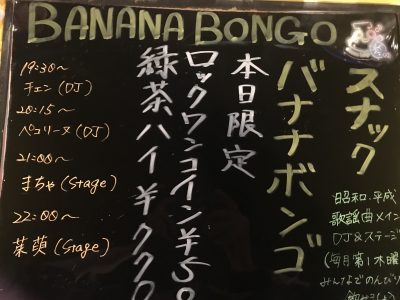 BANANA BONGO
スナック
バナナボンゴ
本日限定
ロックワンコイン¥50
緑茶ハイ¥770
19:30~
チェン(DJ)
20:15~
ペコリーヌ(DJ)
21:00~
まちゃ(Stage)
22:00~
菜萌(Stage)
昭和・平成
歌謡曲メイン
DJ&ステージ
(毎月第1木曜
みんなでのんびり